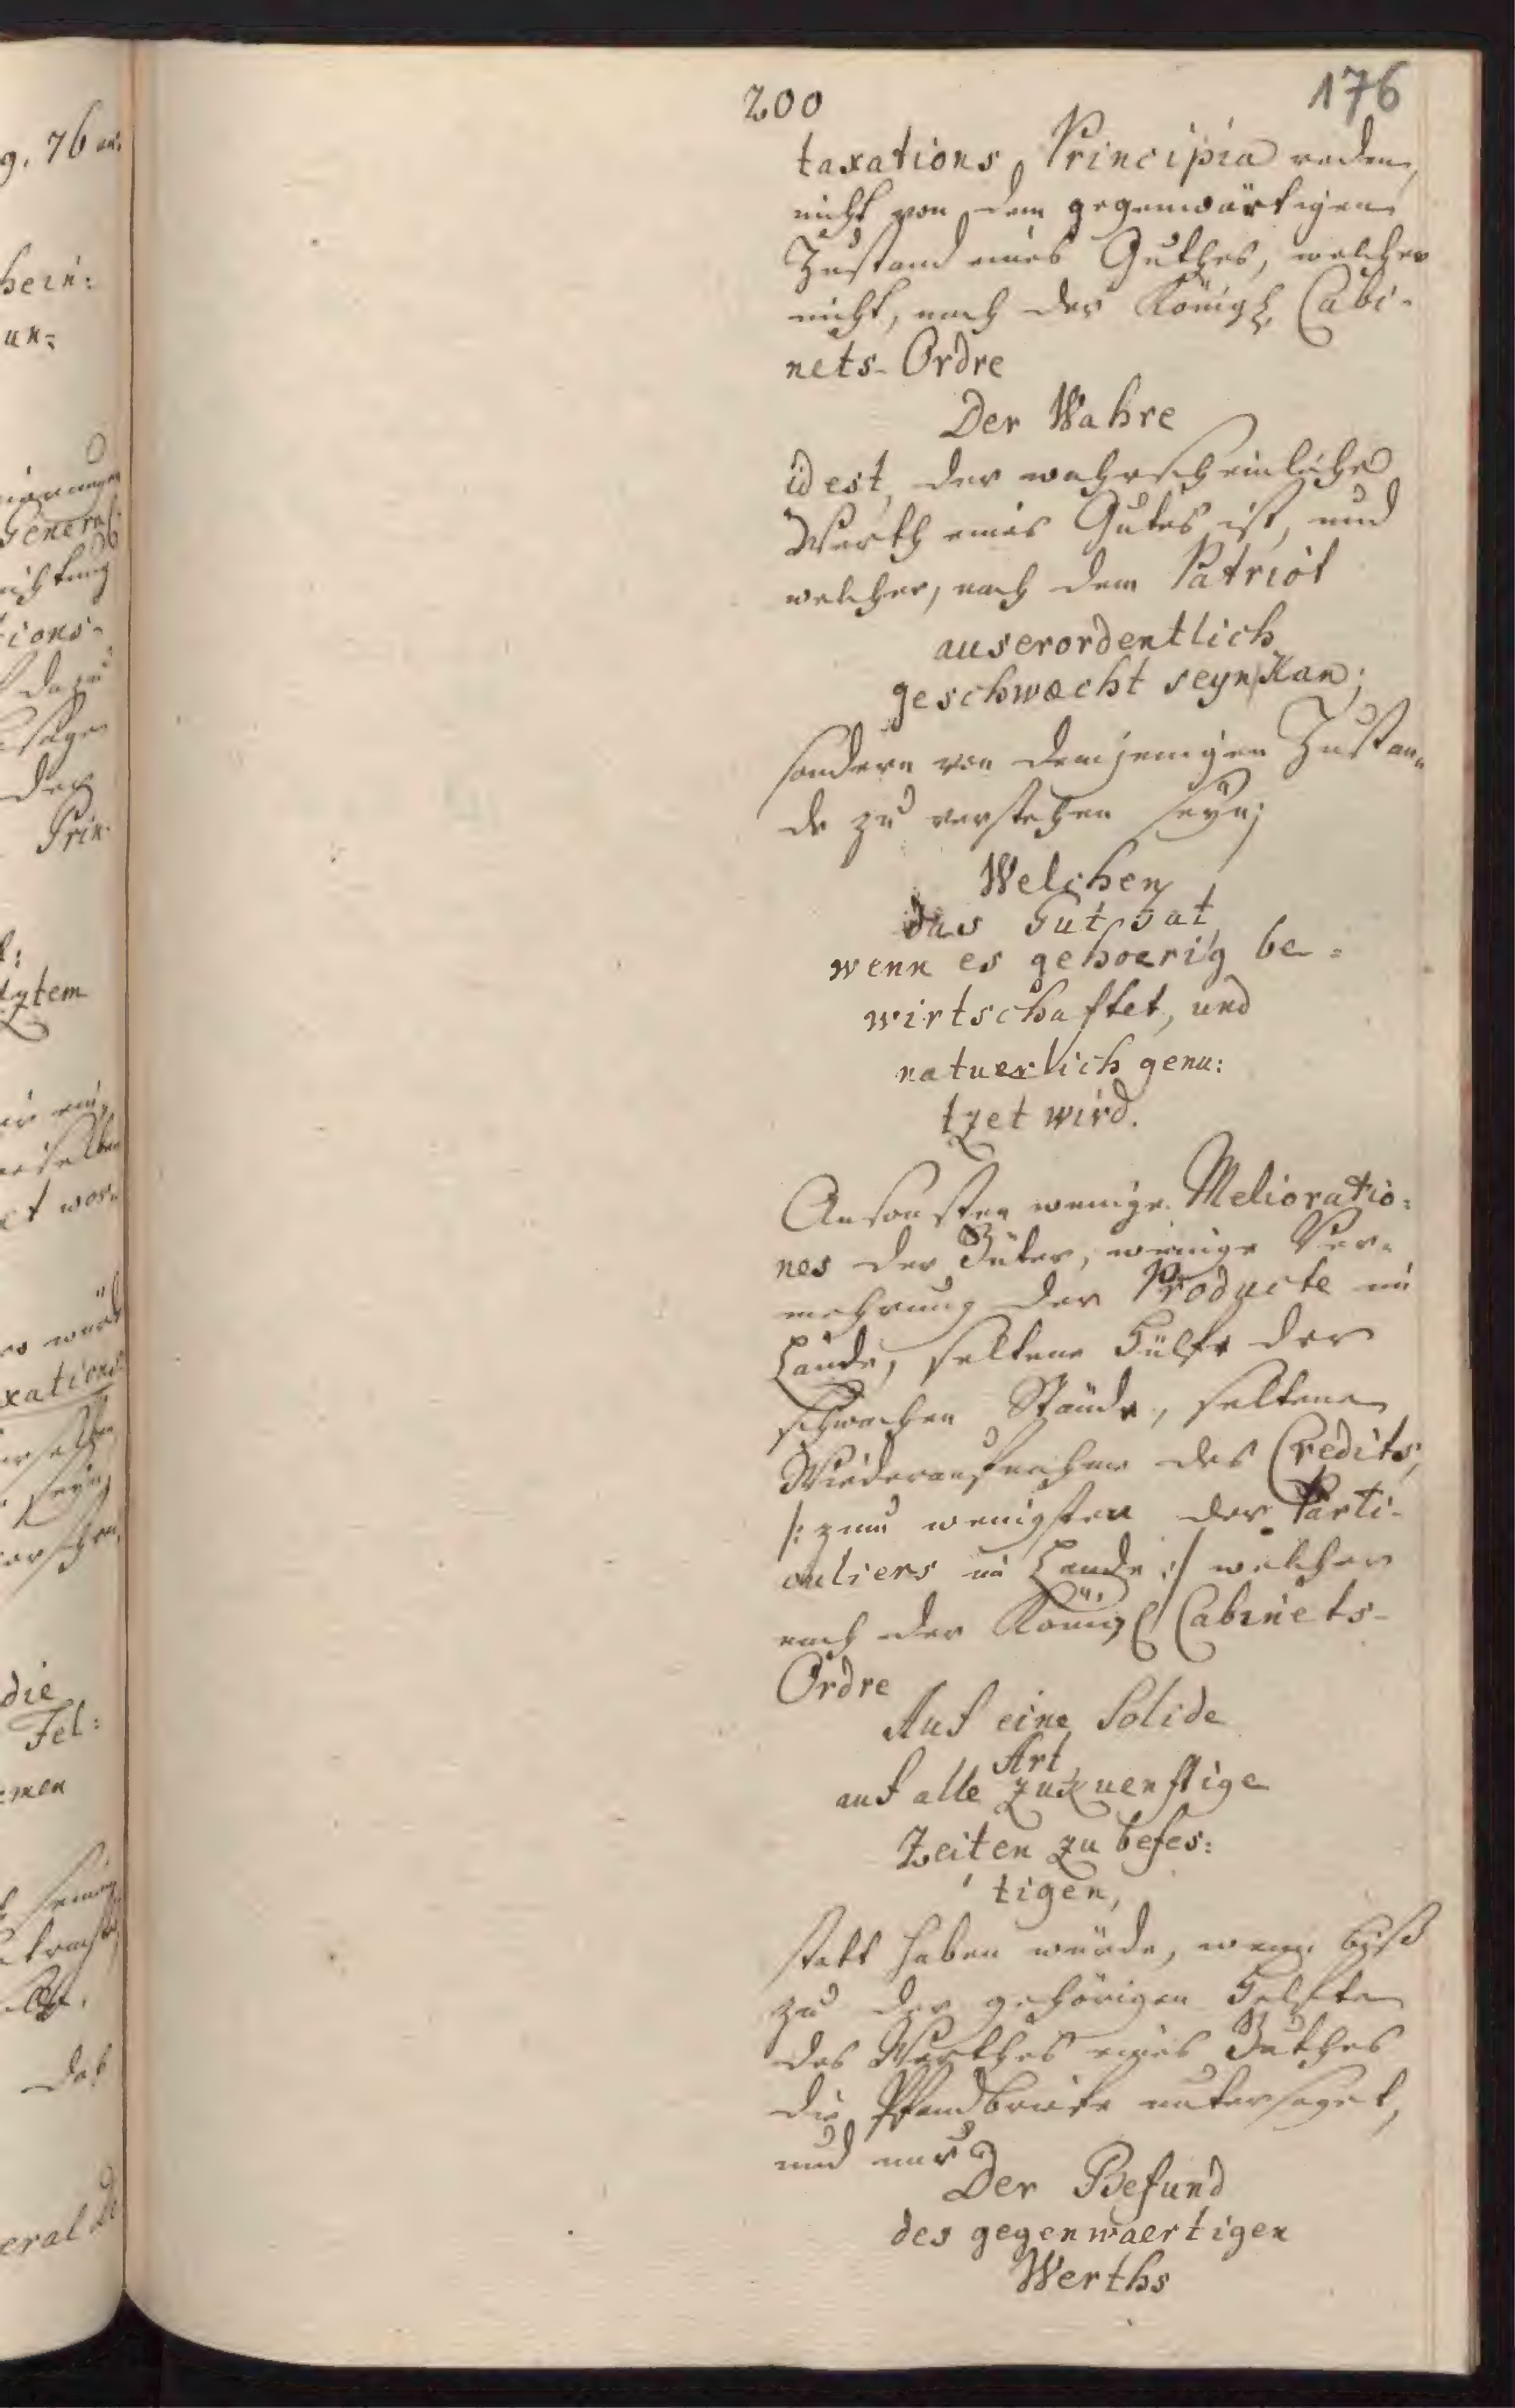 g. 76
hein:
un:
General
ichtung
tions-
dazu
der
Prin-
sytem
xations
die
Fel:
men
das
eral
200
176
taxations Principia reden,
nicht von dem gegenwärtigen
Zustand eines Guthes, welcher
nicht, nach der Königl. Cabi-
nets-Ordre
Der Wahre
id est, der wahrscheinliche
Werth eines Gutes ist, und
welcher, nach dem Patriot
auserordentlich
geschwæcht seyn Kan;
sondern von demjenigen Zustan„
de zu verstehen seyn;
Welchen
das Gut hat,
wenn es gehoerig be=
wirtschaftet, und
natuerlich genu:
tzet wird.
Ansonsten wenige Melioratio:
nes der Güter, wenige Ver-
mehrung der Producte im
Lande, seltene Hülfe der
schwachen Stände, seltene
Wiederaufnahme des Credits,
/: zum wenigsten der Parti-
culiers im Lande :/ welcher
nach der Königl. Cabinets-
Ordre
Auf eine Solide
Art
auf alle zukuenftige
Zeiten zu befes:
tigen,
statt haben würde, wenn biß
zu der gehörigen Helfte
des Werthes eines Guthes
die Pfandbriefe untersaget,
und nur
Der Befund
des gegenwaertigen
Werths